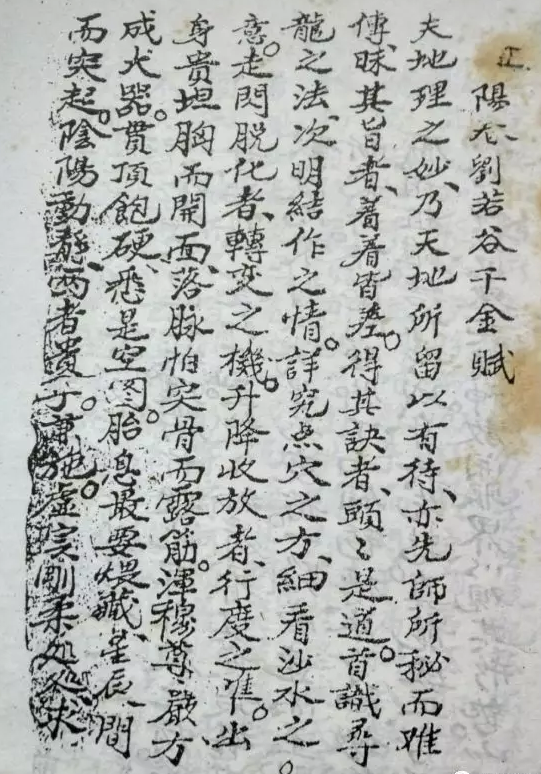 正陽太劉若谷千金賦
夫地理之妙、乃天地所留以有待、亦先師所秘而难
傳、昧其旨者、著看皆差。得其訣者、頭〻是道。首識尋
龍之法、次明結作之情。詳究点穴之方、細看沙水之
意。走閃脱化者、轉变之機。升降收放者、行度之准。出
身貴坦胸而開面、落脉怕突骨而露筋。渾穆尊嚴、方
成大器。貫頂飽硬、悉是空图。胎息最要煨藏、星辰間
而突起。陰陽動静、两者貴于兼施。虚実剛柔、处处求